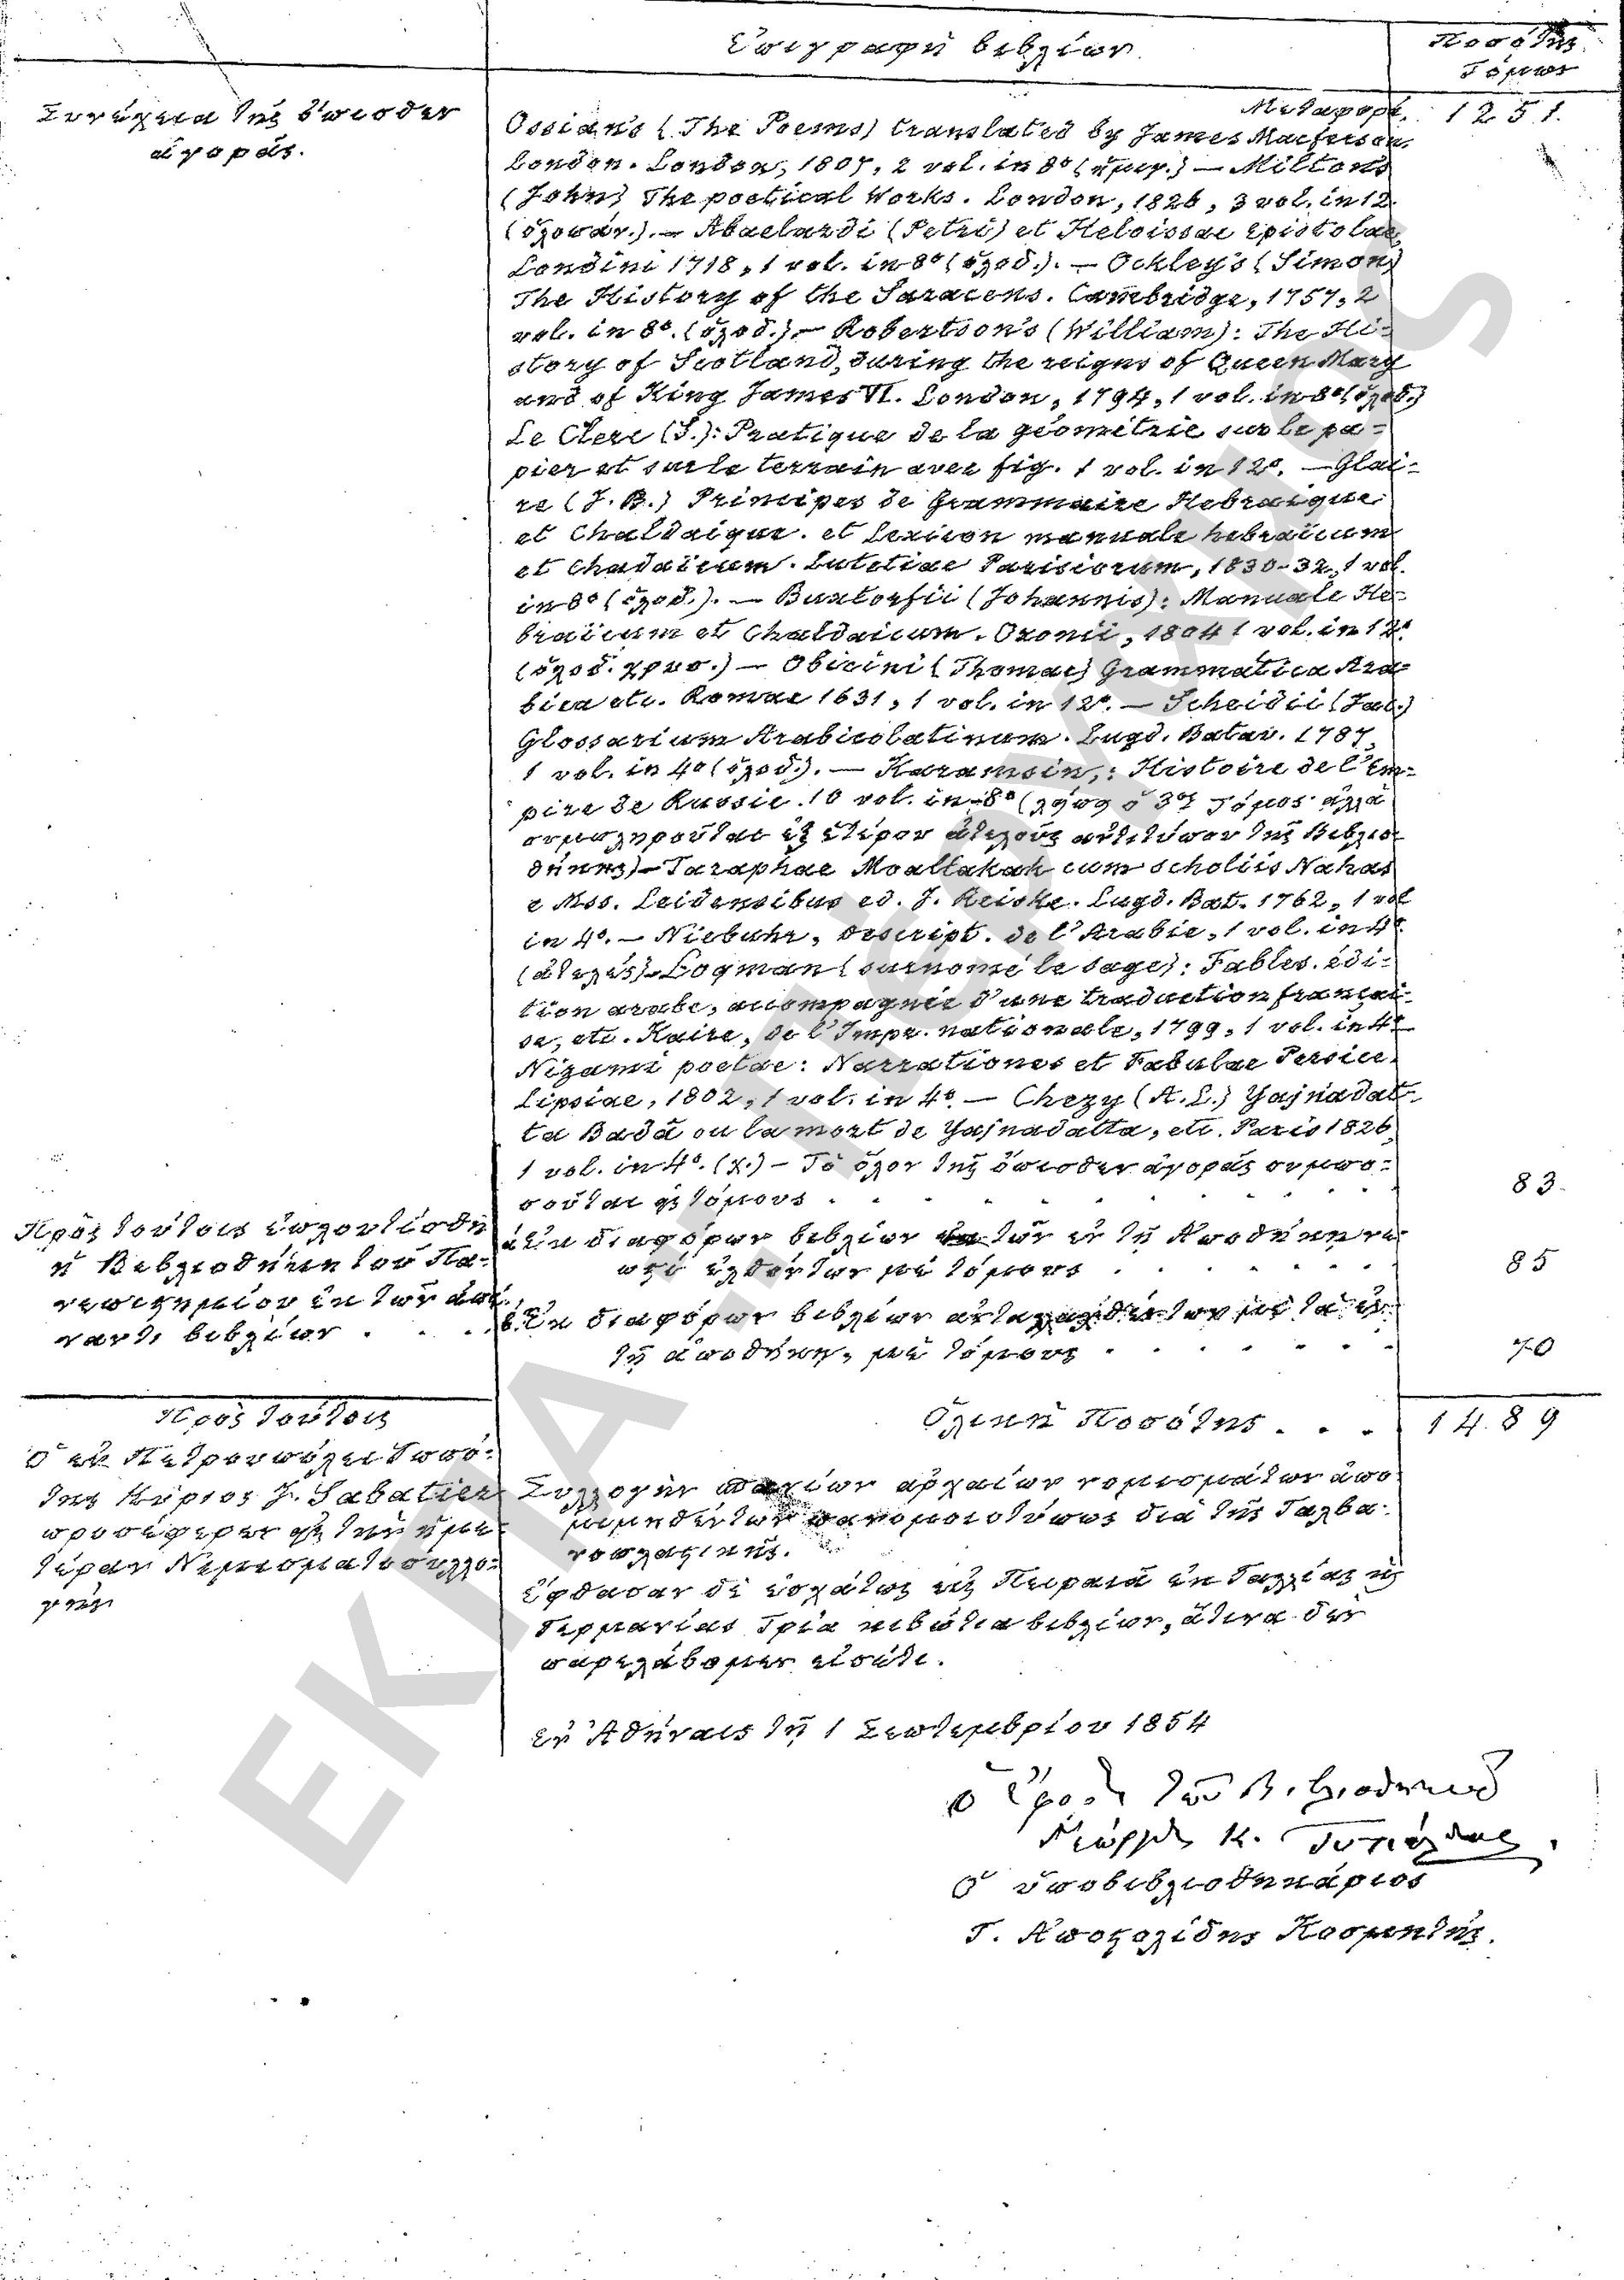 Ἐπιγραφὴ βιβλίων
Ποσότης
Τόμων
Συνέχεια τῆς ὄπισθεν
ἀγορᾶς.
Μεταφορὰ. 1251.
Ossian's (The Poems) translated by James Macferson.
London. London, 1807, 2 vol. in 8º (ἡμιγ.) — Milton's
(John) The poetical Works. London, 1826, 3 vol. in 12.
(ὁλοπάν.). — Abaelardi (Petri) et Heloissae Epistolae,
Londini 1718, 1 vol. in 8º (ὁλοδ.). — Ockley's (Simon)
The History of the Saracens. Cambridge, 1757, 2
vol. in 8º. (ὁλοδ.) — Robertson's (William): The Hi-
story of Scotland, during the reigns of Queen Mary
and of King James VI. London, 1794, 1 vol. in 8º (ὁλοδ.)
Le Clerc (S.): Pratique de la géométrie sur le pa-
pier et sur le terrain avec fig. 1 vol. in 12º. — Glai-
re (J. B.) Principes de Grammaire Hebraique
et Chaldaique. et Lexicon manuale hebraïcum
et Chadaïcum. Lutetiae Parisiorum, 1830-32, 1 vol.
in 8º (ὁλοδ.). — Buxtorfii (Johannis): Manuale He-
braïcum et Chaldaïcum. Oxonii, 1804 1 vol. in 12º
(ὁλοδ. χρυσ.) — Obicini (Thomae) Grammatica Ara-
bica etc. Romae 1631, 1 vol. in 12º. — Scheidii (Jac.)
Glossarium Arabicolatinum. Lugd. Batav. 1787,
1 vol. in 4º (ὁλοδ.). — Karamsin,: Histoire de l'Em-
pire de Russie. 10 vol. in-8º (λείπει ὁ 3ος τόμος ἀλλὰ
συμπληροῦται ἐξ ἑτέρου ἀτελοῦς ἀντιτύπου τῆς Βιβλιο-
θήκης) — Taraphae Moallakah cum scholiis Nahas
e Mss. Leidensibus ed. J. Reiske. Lugd. Bat. 1762, 1 vol
in 4º. — Niebuhr, Descript. de l'Arabie, 1 vol. in 4º
(ἀτελές) — Loqman (surnomé le sage): Fables. édi-
tion arabe, accompagnée d'une traduction françai-
se, etc. Kaire, de l'Impr. nationale, 1799, 1 vol. in 4º —
Nizami poetae: Narrationes et Fabulae Persice.
Lipsiae, 1802, 1 vol. in 4º — Chezy (A. L.) Yajnadat-
ta Badā ou la mort de Yajnadatta, etc. Paris 1826,
1 vol. in 4º. (χ.) — Τὸ ὅλον τῆς ὄπισθεν ἀγορᾶς συμπο-
σοῦται εἰς τόμους . . . . . . . 83.
Πρὸς τούτοις ἐπλουτίσθη
ἡ Βιβλιοθήκη τοῦ Πα-
νεπιστημίου ἐκ τῶν ἀπέ-
ναντι βιβλίων . . .
ἐκ διαφόρων βιβλίων ἐκ τῶν ἐν τῇ Ἀποθήκῃ
ἐλθόντων μὲ τόμους . . . . . . 85
β. Ἐκ διαφόρων βιβλίων ἀνταλλαχθέντων μὲ τὰ ἐν
τῇ ἀποθήκῃ, μὲ τόμους . . . . . . 70
Ὁλικὴ Ποσότης . . . 1489
Πρὸς τούτοις
ὁ ἐν Πετρουπόλει Ἱππό-
της Κύριος J. Sabatier
προσέφερεν εἰς τὴν ἡμε-
τέραν Νομισματοσυλλο-
γὴν
Συλλογὴν σπανίων ἀρχαίων νομισμάτων ἀπο-
μιμηθέντων πανομοιοτύπως διὰ τῆς Γαλβα-
νοπλαστικῆς.
Ἔφθασαν δὲ ἐσχάτως εἰς Πειραιᾶ ἐκ Γαλλίας κ
Γερμανίας τρία κιβώτια βιβλίων, ἅτινα δὲν
παρελάβομεν εἰσέτι.
Ἐν Ἀθήναις τῇ 1 Σεπτεμβρίου 1854
ὁ Ἔφορος τῆς Βιβλιοθήκης
Γεώργιος Κ. Τυπάλδος
Ὁ ὑποβιβλιοθηκάριος
Γ. Ἀποστολίδης Κοσμητής.
ΕΚΠΑ